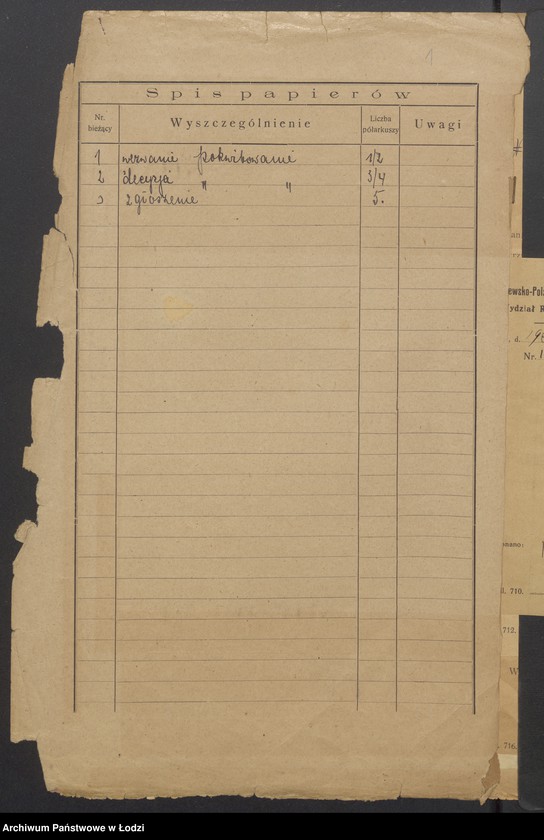 1
Spis papierów
Nr. bieżący Wyszczególnienie Liczba półarkuszy Uwagi
1 wezwanie pokwitowanie 1/2
2 decyzja " " 3/4
3 zgłoszenie 5.
ewsko-Pol
ydział R
d. 19
Nr. 1
710.
712.
W
716.
Archiwum Państwowe w Łodzi